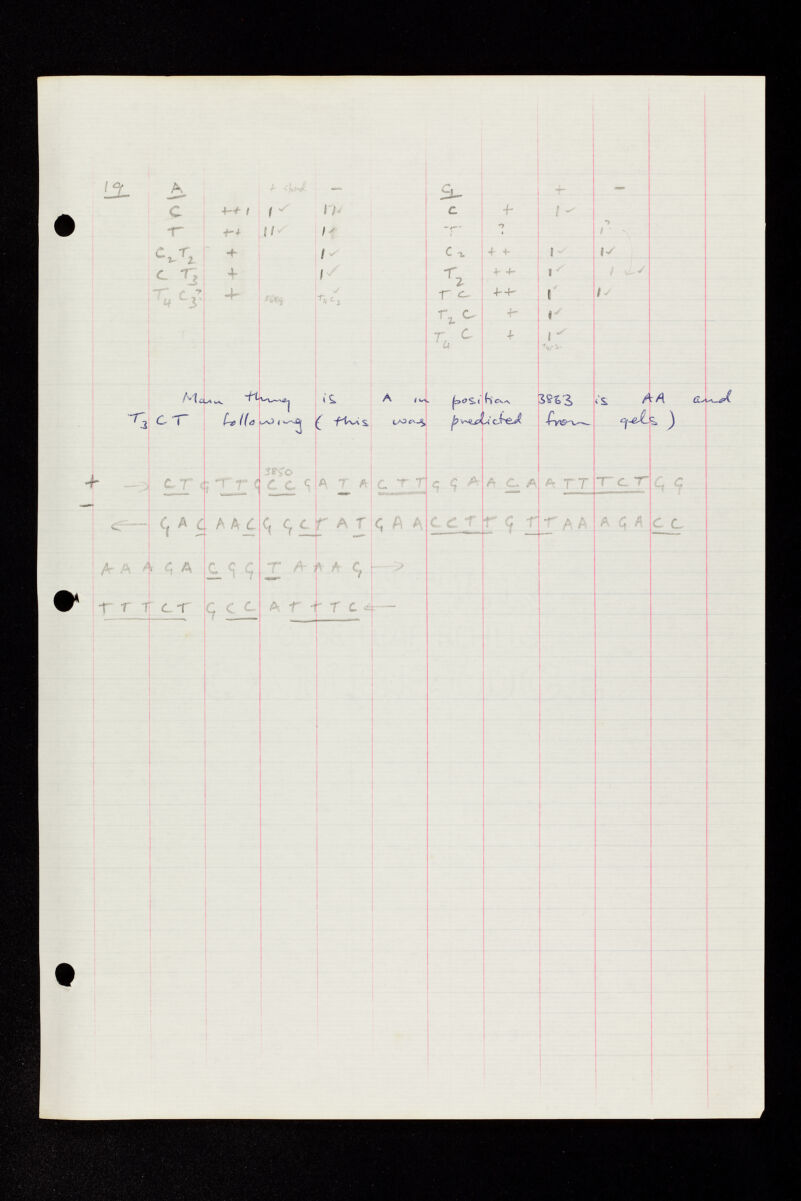 19 A + strand − G + −
C ++ 1 1✓ 11✓ C + 1✓
T ++ 11✓ 1✓ T ? 1?
C₂T₂ + 1✓ C₂ ++ 1✓ 1✓
C T₃ + 1✓ T₂ ++ 1✓ 1 ✓✓
T₄C₃? + T₄C₃ ✓ T C ++ 1✓ 1✓
T₂ C + 1✓
T₄ C + 1✓
Main thing is A in position 3863 is AA and
T₃ C T following ( this was predicted from gels )
3850
+ → C T G T T G C C G A T A C T T G G A A C A A T T T C T G G
− ← G A C A A C G G C T A T G A A C C T T G T T A A A G A C C
A A A G A C G G T A A A G →
T T T C T G C C A T T T C ←